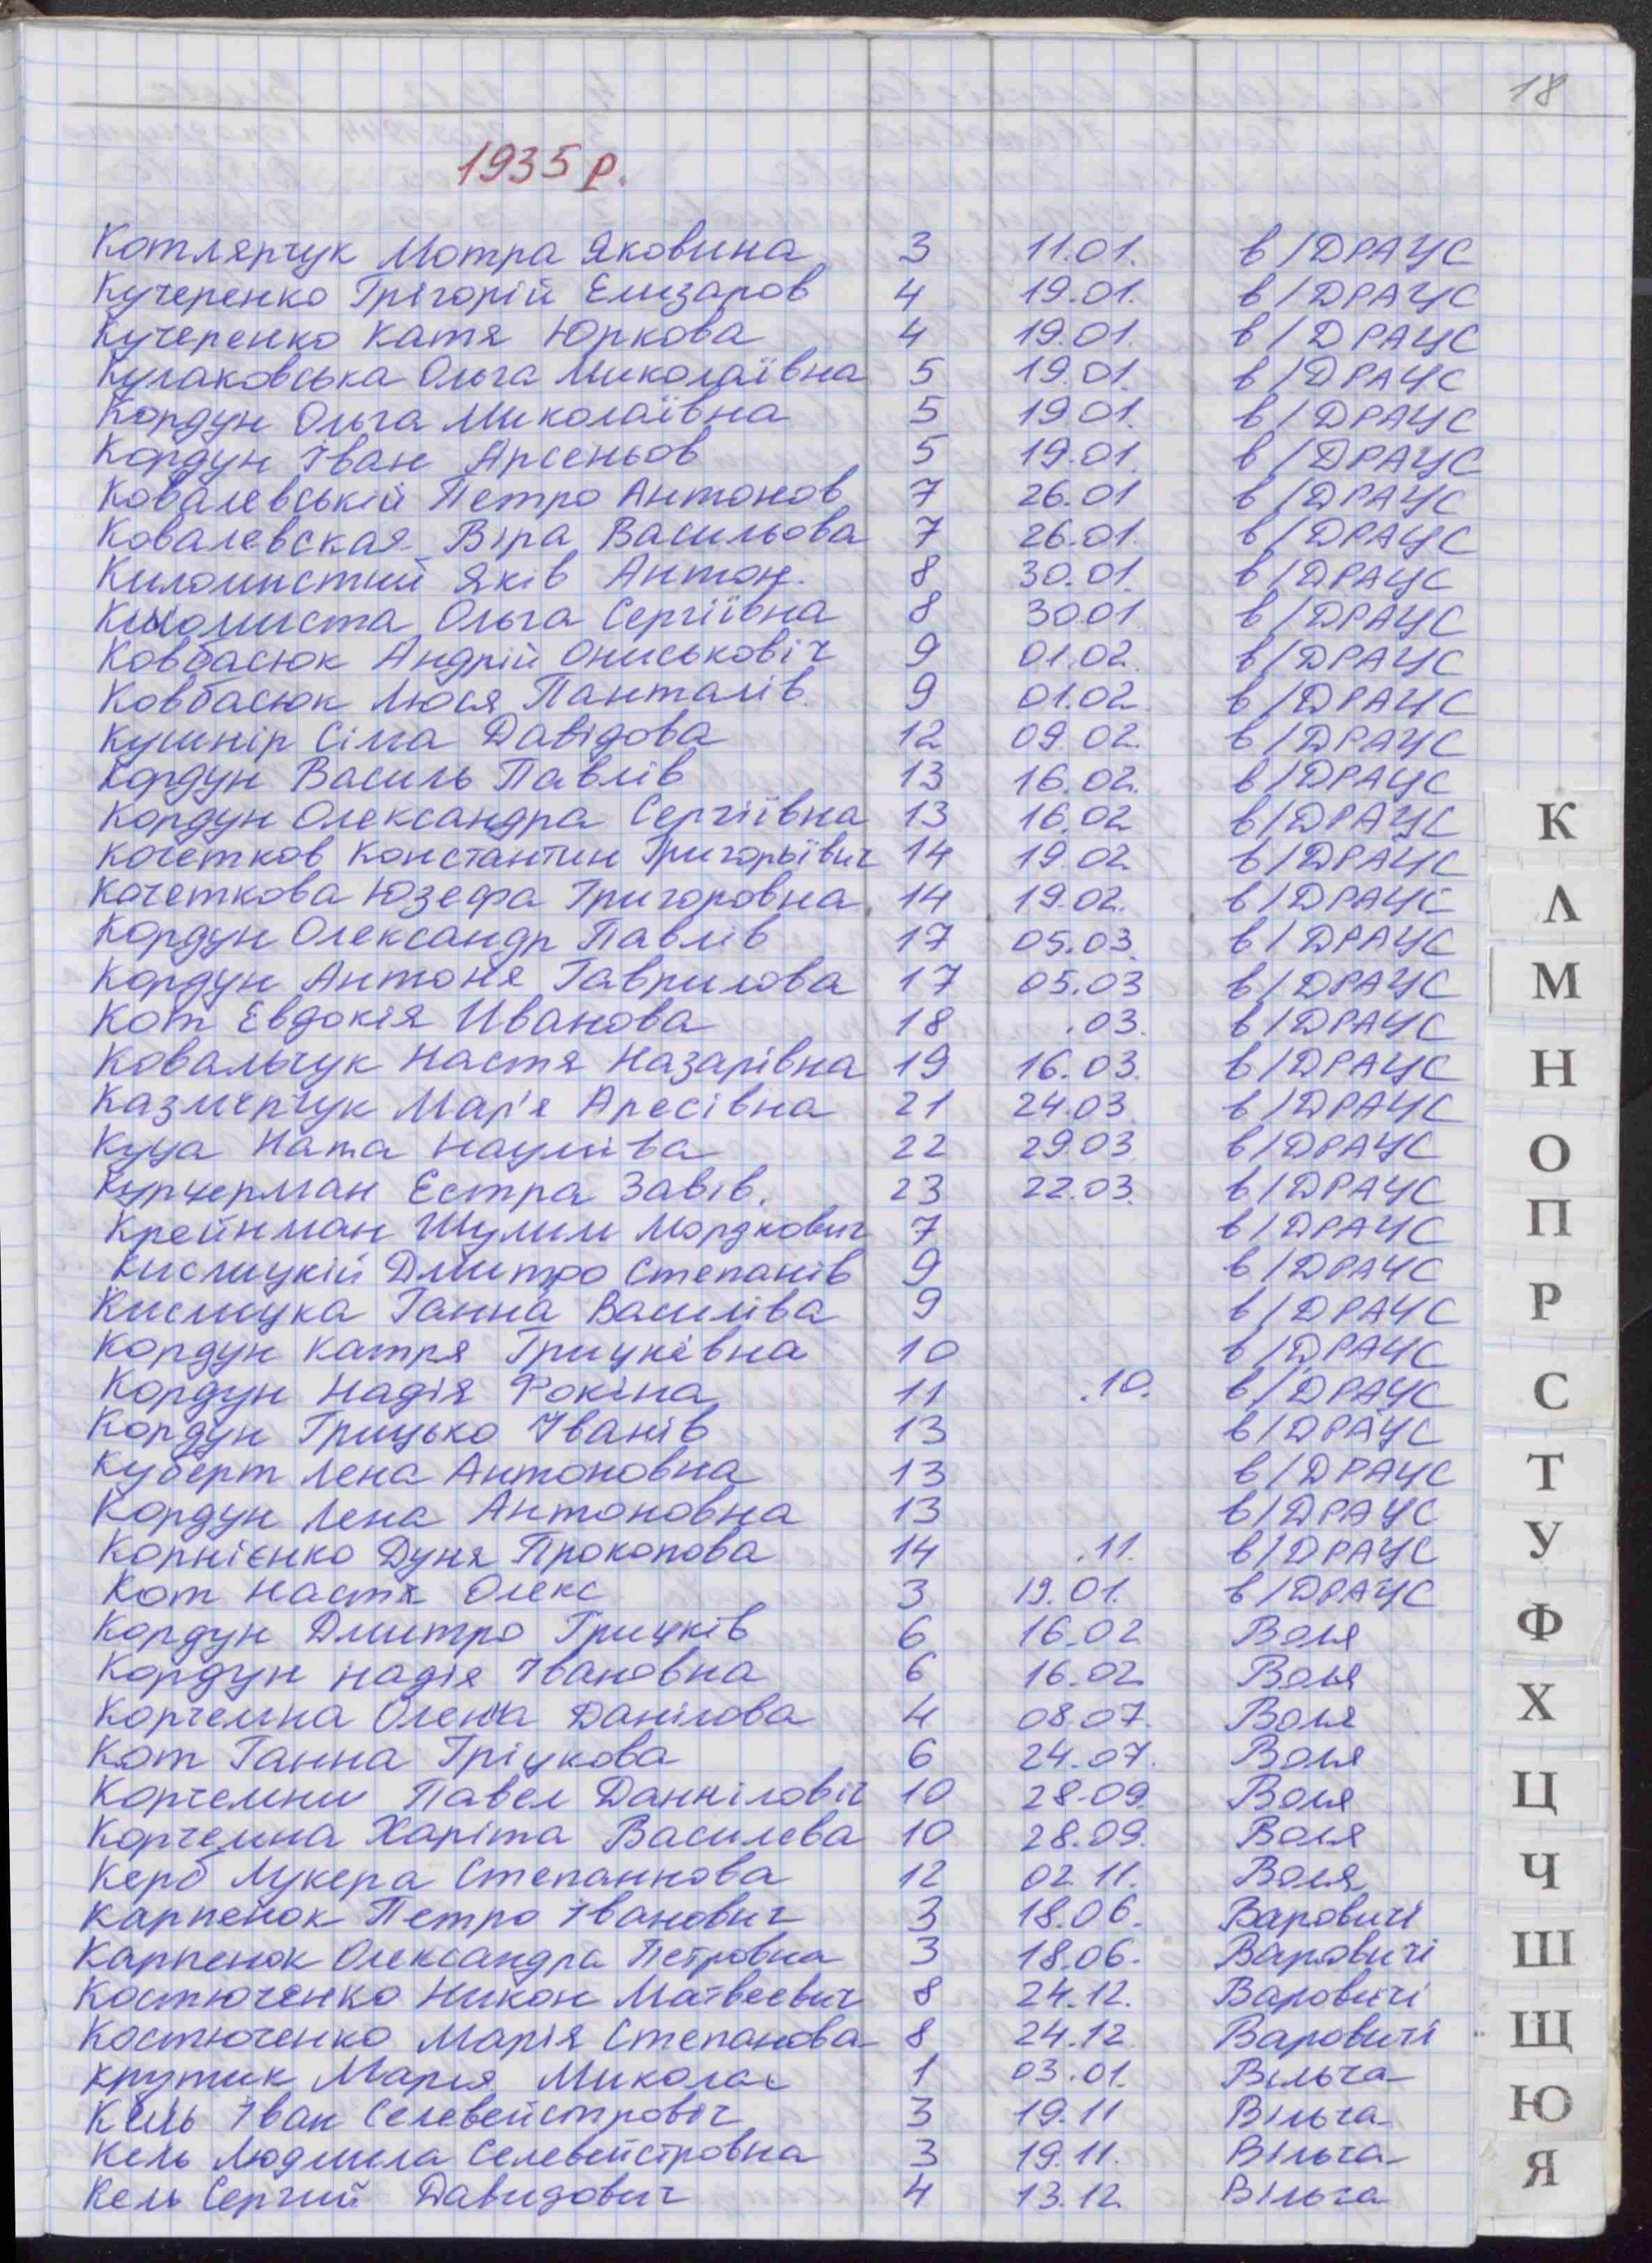 18
1935 р.
Котлярчук Мотра Яковина 3 11.01. в/ДРАЦС
Кучеренко Грігорій Елизаров 4 19.01. в/ДРАЦС
Кучеренко Катя Юркова 4 19.01. в/ДРАЦС
Кулаковська Ольга Миколаївна 5 19.01. в/ДРАЦС
Кордун Ольга Миколаївна 5 19.01. в/ДРАЦС
Кордун Іван Арсеньов 5 19.01. в/ДРАЦС
Ковалевській Петро Антонов 7 26.01 в/ДРАЦС
Ковалевская Віра Васильова 7 26.01. в/ДРАЦС
Киломистий Яків Антон. 8 30.01. в/ДРАЦС
Киломиста Ольга Сергіївна 8 30.01 в/ДРАЦС
Ковбасюк Андрій Ониськовіч 9 01.02. в/ДРАЦС
Ковбасюк Люся Панталів. 9 01.02. в/ДРАЦС
Кушнір Сіма Давідова 12 09.02. в/ДРАЦС
Кордун Василь Павлів 13 16.02. в/ДРАЦС
Кордун Олександра Сергіївна 13 16.02 в/ДРАЦС
Кочетков Константин Григорьївич 14 19.02 в/ДРАЦС
Кочеткова Юзефа Григоровна 14 19.02. в/ДРАЦС
Кордун Олександр Павлів 17 05.03. в/ДРАЦС
Кордун Антоня Гаврилова 17 05.03 в/ДРАЦС
Кот Евдокія Иванова 18 .03. в/ДРАЦС
Ковальчук Настя Назарівна 19 16.03. в/ДРАЦС
Казмерчук Мар'я Аресівна 21 24.03 в/ДРАЦС
Куца Ната Наумiва 22 29.03 в/ДРАЦС
Курцерман Естра Завів. 23 22.03. в/ДРАЦС
Крейнман Шулим Мордкович 7 в/ДРАЦС
Кислицкій Дмитро Степанів 9 в/ДРАЦС
Кислицка Ганна Василіва 9 в/ДРАЦС
Кордун Катря Грицківна 10 в/ДРАЦС
Кордун Надія Фокіна 11 .10. в/ДРАЦС
Кордун Грицько Іванів 13 в/ДРАЦС
Куберт Лена Антоновна 13 в/ДРАЦС
Кордун Лена Антоновна 13 в/ДРАЦС
Корнієнко Дуня Прокопова 14 .11. в/ДРАЦС
Кот Настя Олекс 3 19.01. в/ДРАЦС
Кордун Дмитро Грицків 6 16.02 Воля
Кордун Надія Івановна 6 16.02 Воля
Корчемна Олена Данілова 4 08.07. Воля
Кот Ганна Гріцкова 6 24.07. Воля
Корчемни Павел Данніловіч 10 28.09. Воля
Корчемна Харіта Василева 10 28.09. Воля
Керб Лукера Степаннова 12 02.11. Воля
Карпенок Петро Іванович 3 18.06. Варовичі
Карпенок Олександра Петровна 3 18.06. Варовичі
Костюченко Никон Матвеевич 8 24.12. Варовичі
Костюченко Марія Степанова 8 24.12. Варовичі
Крутик Марія Микола 1 03.01. Вільча
Кель Іван Селевейстровіч 3 19.11 Вільча
Кель Людмила Селевейстровна 3 19.11. Вільча
Кель Сергий Давидович 4 13.12. Вільча
К
Л
М
Н
О
П
Р
С
Т
У
Ф
Х
Ц
Ч
Ш
Щ
Ю
Я